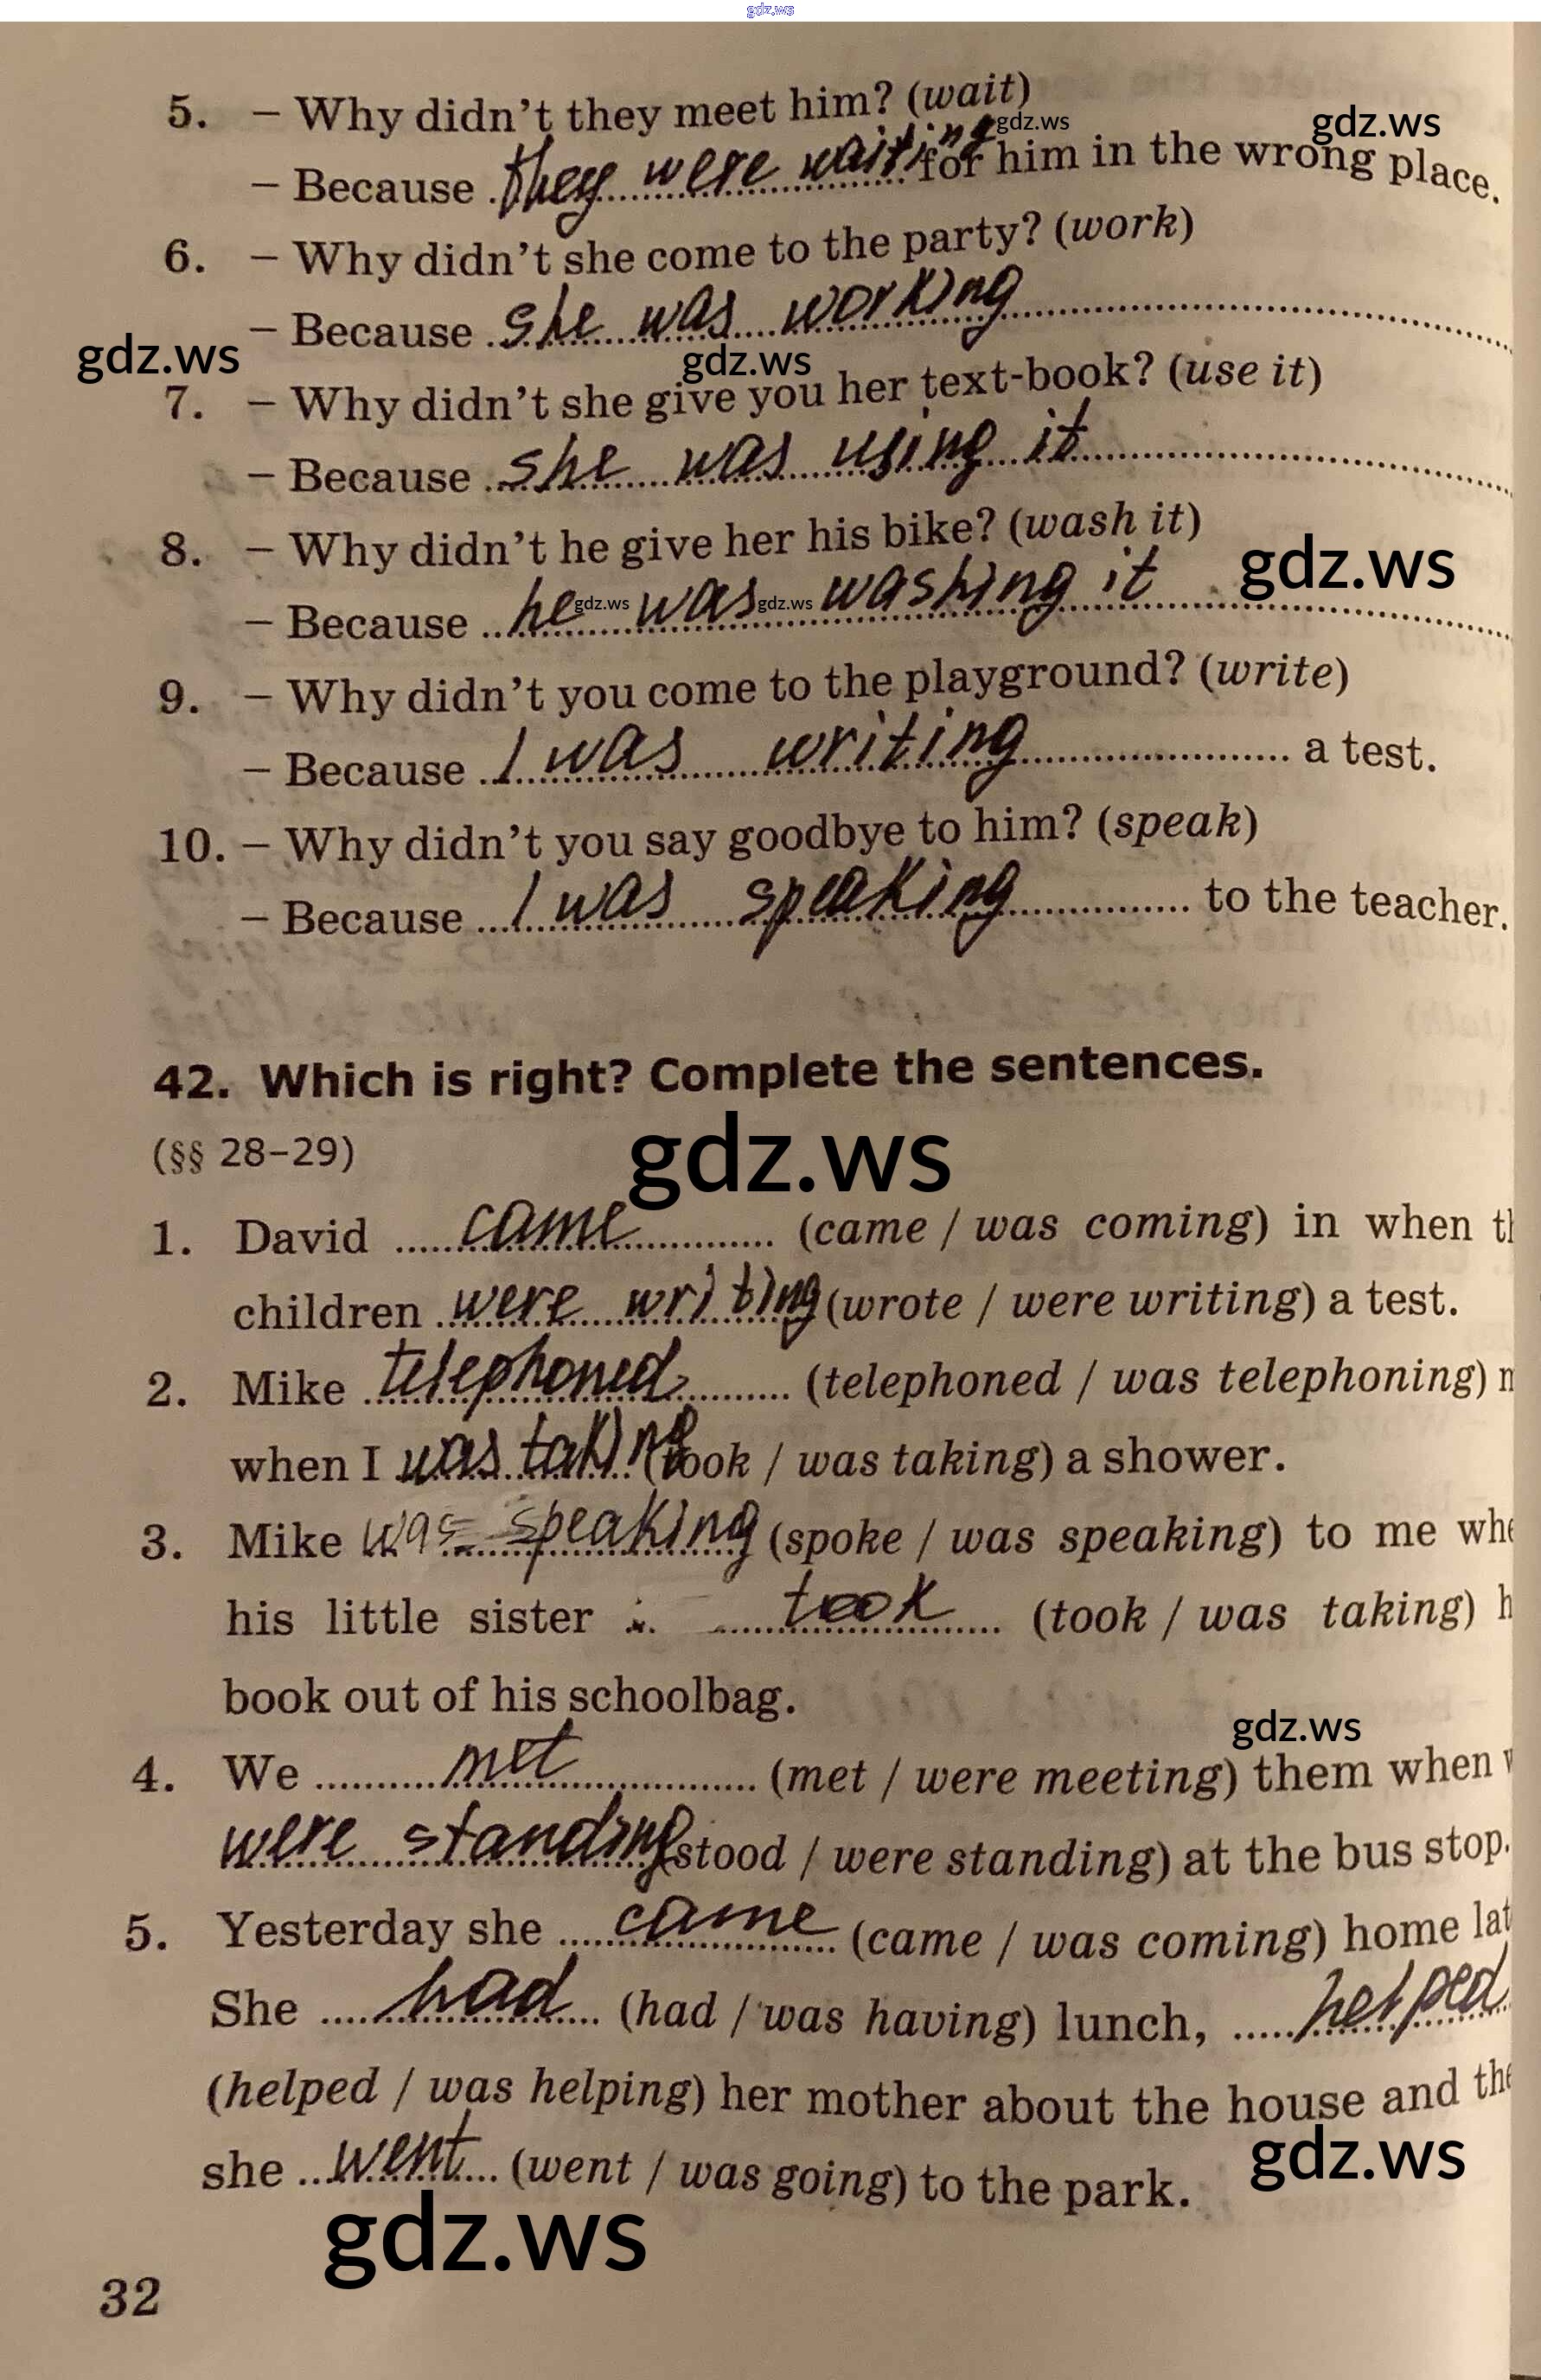 gdz.ws
5. – Why didn't they meet him? (wait)
gdz.ws gdz.ws
– Because they were waiting for him in the wrong place.
6. – Why didn't she come to the party? (work)
– Because she was working
gdz.ws gdz.ws
7. – Why didn't she give you her text-book? (use it)
– Because she was using it
8. – Why didn't he give her his bike? (wash it)
gdz.ws
– Because he was washing it
gdz.ws gdz.ws
9. – Why didn't you come to the playground? (write)
– Because I was writing a test.
10. – Why didn't you say goodbye to him? (speak)
– Because I was speaking to the teacher.
42. Which is right? Complete the sentences.
(§§ 28–29)
gdz.ws
1. David came (came / was coming) in when th
children were writing (wrote / were writing) a test.
2. Mike telephoned (telephoned / was telephoning) m
when I was taking (took / was taking) a shower.
3. Mike was speaking (spoke / was speaking) to me whe
his little sister took (took / was taking) h
book out of his schoolbag.
gdz.ws
4. We met (met / were meeting) them when w
were standing (stood / were standing) at the bus stop.
5. Yesterday she came (came / was coming) home lat
She had (had / was having) lunch, helped
(helped / was helping) her mother about the house and the
she went (went / was going) to the park.
gdz.ws
gdz.ws
32